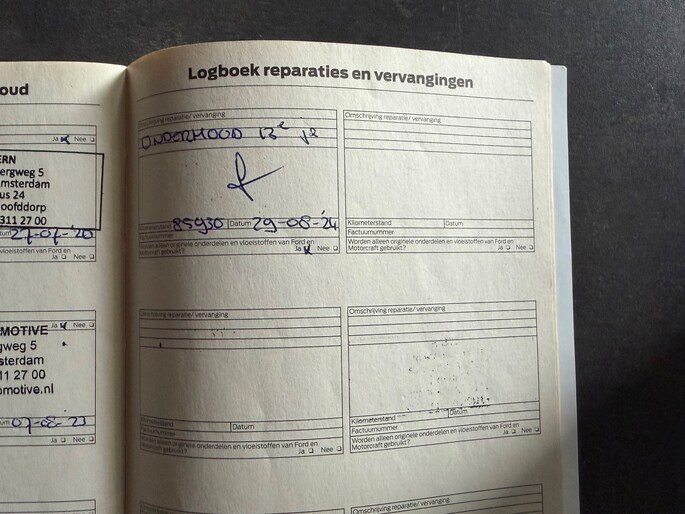 oud
Ja Nee
ERN
ergweg 5
msterdam
us 24
oofddorp
311 27 00
tum 27-07-'20
vloeistoffen van Ford en
Ja Nee
MOTIVE Ja Nee
gweg 5
sterdam
11 27 00
omotive.nl
um 07-08-'23
Ja Nee
Logboek reparaties en vervangingen
Omschrijving reparatie/ vervanging
ONDERHOUD 13e
Kilometerstand 85930 Datum 29-08-'24
Factuurnummer
Worden alleen originele onderdelen en vloeistoffen van Ford en
Motorcraft gebruikt? Ja Nee
Omschrijving reparatie/ vervanging
Kilometerstand Datum
Factuurnummer
Worden alleen originele onderdelen en vloeistoffen van Ford en
Motorcraft gebruikt? Ja Nee
Omschrijving reparatie/ vervanging
Kilometerstand Datum
Factuurnummer
Worden alleen originele onderdelen en vloeistoffen van Ford en
Motorcraft gebruikt? Ja Nee
Omschrijving reparatie/ vervanging
Kilometerstand Datum
Factuurnummer
Worden alleen originele onderdelen en vloeistoffen van Ford en
Motorcraft gebruikt? Ja Nee
Omschrijving reparatie/ vervanging
Omschrijving reparatie/ vervanging